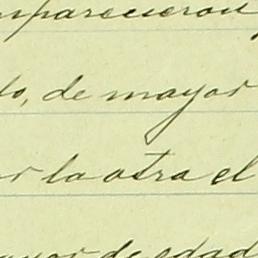 mparecieron
do, de mayor
or la otra el
ayor de edad